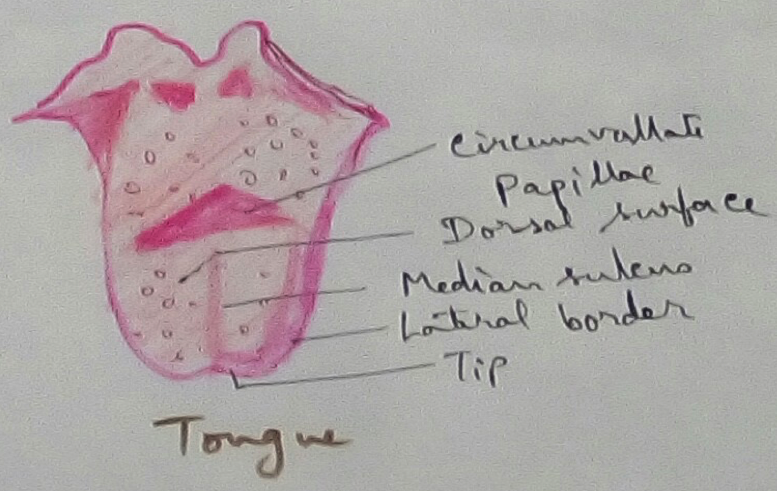 Circumvallate
Papillae
Dorsal surface
Median sulcus
Lateral border
Tip
Tongue